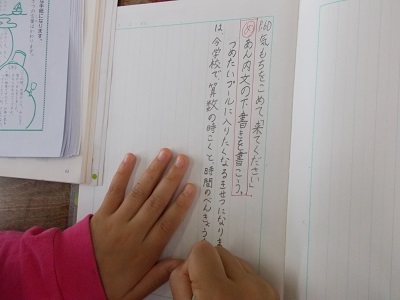 P60 気もちをこめて「来てください」
め あん内文の下書きを書こう。
つめたいプールに入りたくなるきせつになりま
は、今学校で、算数の時こくと、時間のべんきょう
手紙になります。